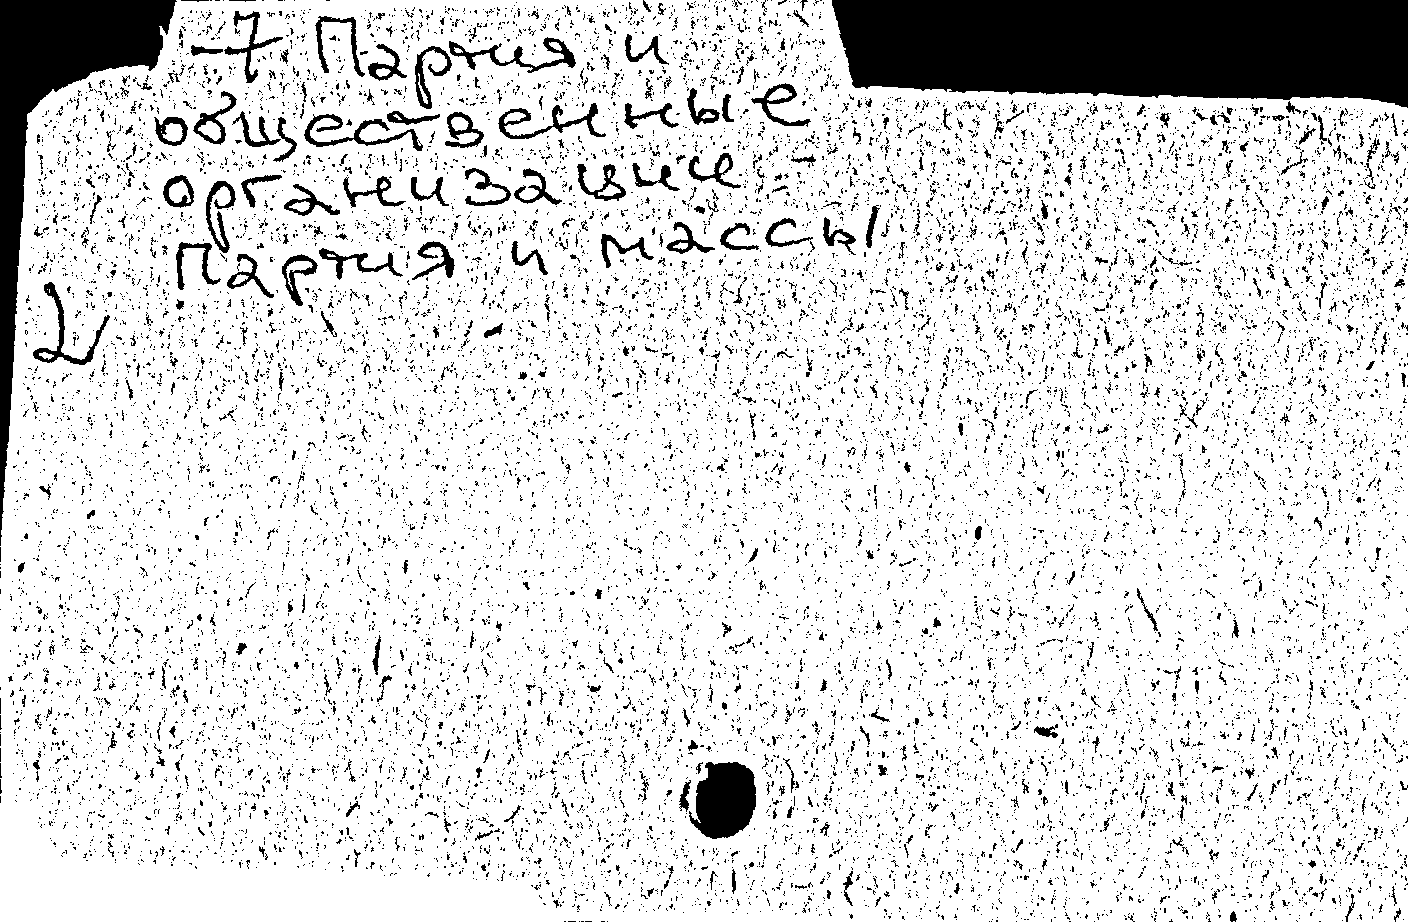 -7 Партия и
общественные
организации -
Партия и массы